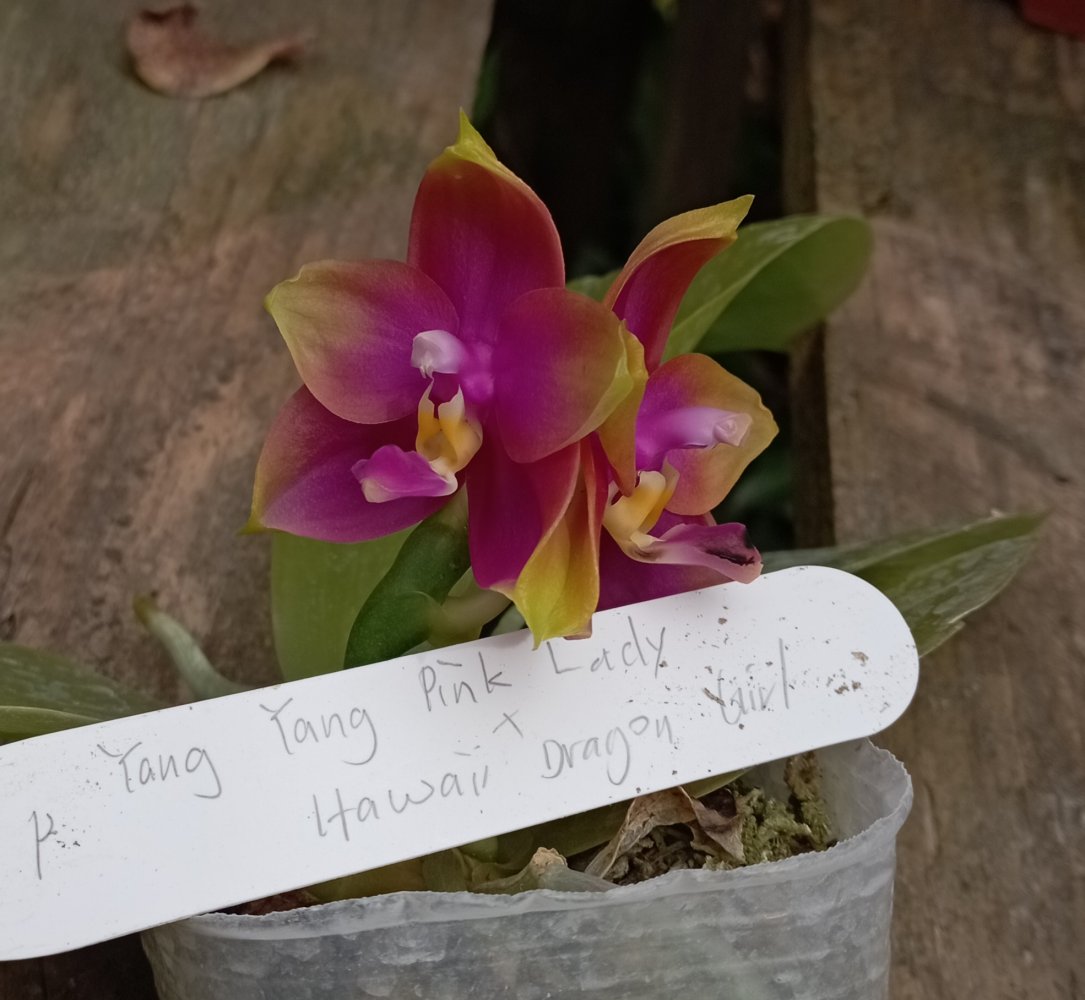 P. Yang Yang Pink Lady
x
Hawaii Dragon Girl